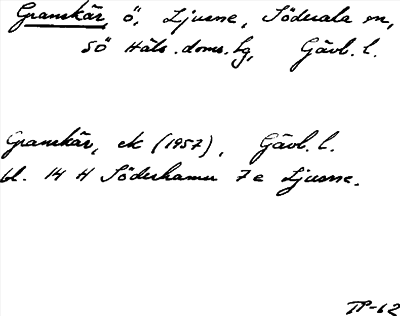 Granskär, ö, Ljusne, Söderala sn,
SÖ Häls. doms. tg, Gävl. l.
Granskär, ek (1957), Gävl. l.
bl. 14 H Söderhamn 7 e Ljusne.
TP-62